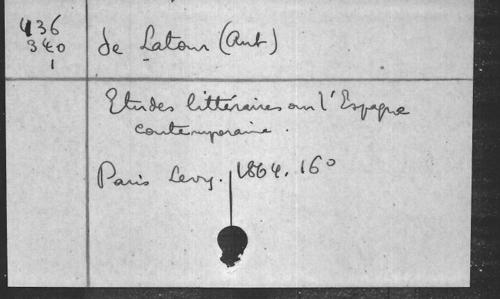 436
340
1
de Latour (Ant)
Etudes littéraires sur l'Espagne
contemporaine.
Paris Levy. 1864. 16°